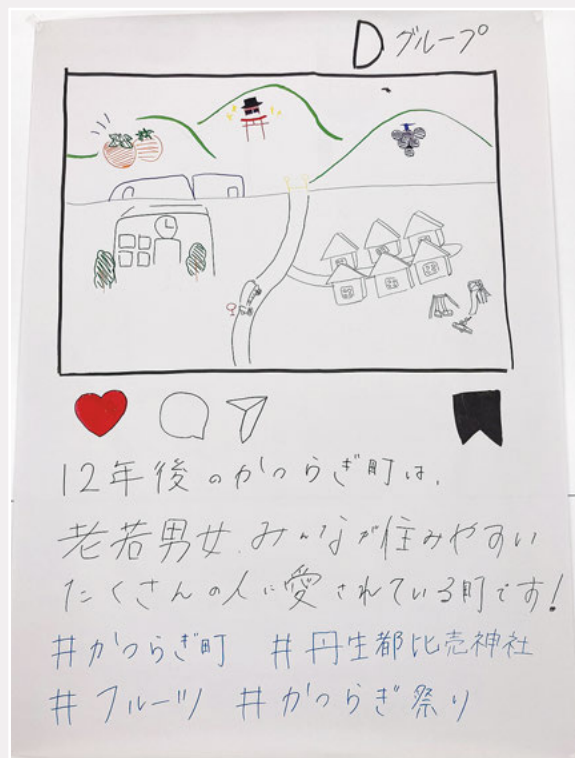 Dグループ
12年後のかつらぎ町は、
老若男女、みんなが住みやすい
たくさんの人に愛されている町です!
#かつらぎ町 #丹生都比売神社
#フルーツ #かつらぎ祭り